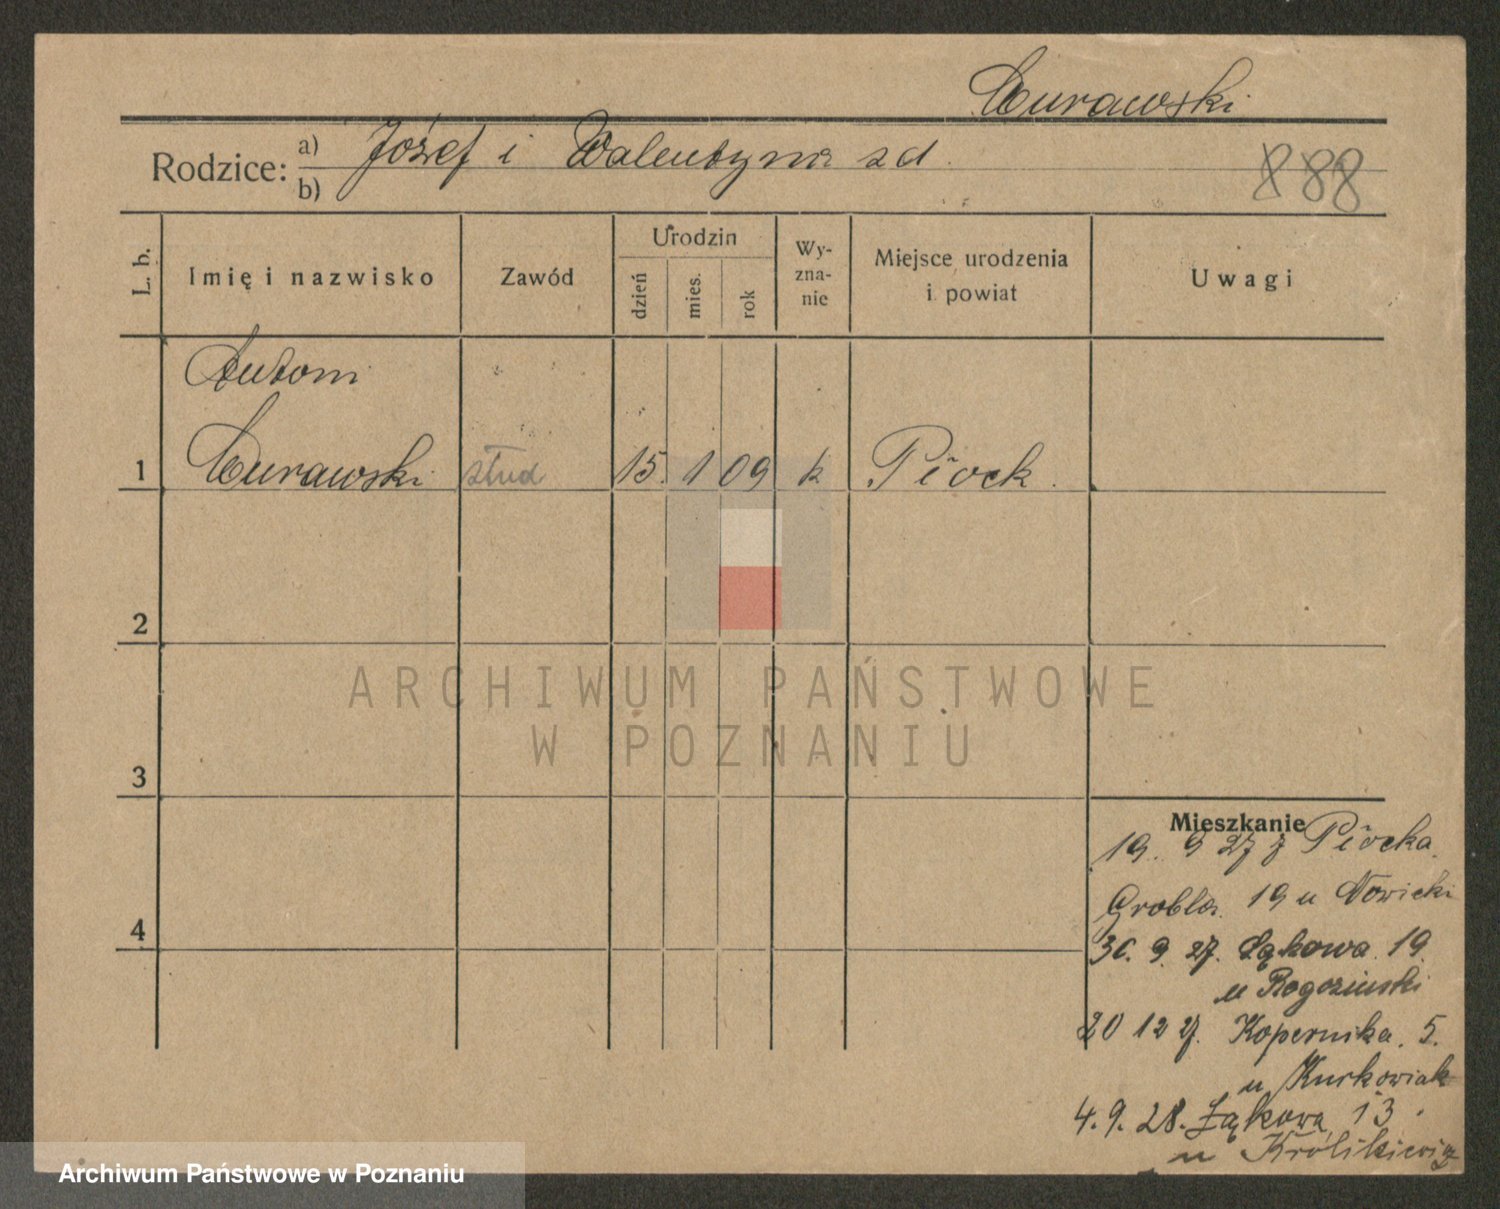 Curawski
Rodzice: a) Józef i Walentyna zd.
b)
888
L. b.
Imię i nazwisko
Zawód
Urodzin
dzień
mies.
rok
Wy-
zna-
nie
Miejsce urodzenia
i powiat
Uwagi
Antoni
1 Curawski stud 15. 1 09 k Płock.
2
ARCHIWUM PAŃSTWOWE
W POZNANIU
3
Mieszkanie
19. 9 27 z Płocka.
Grobla. 19 u Nowicki
4
30. 9. 27. Łąkowa. 19.
u Rogoziński
20 12 27. Kopernika. 5.
u Kurkowiak
4. 9. 28. Łąkowa 13.
u Królikiewicz
Archiwum Państwowe w Poznaniu